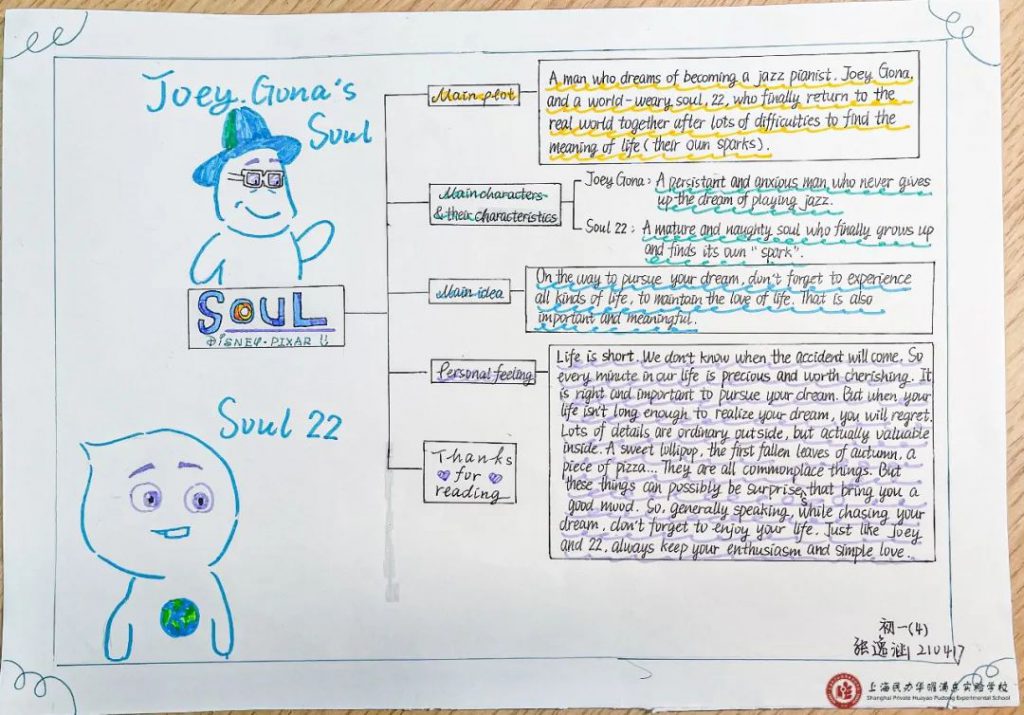 Joey.Gona's
Soul
SOUL
DISNEY·PIXAR
Soul 22
Main plot
A man who dreams of becoming a jazz pianist, Joey Gona,
and a world-weary soul, 22, who finally return to the
real world together after lots of difficulties to find the
meaning of life (their own sparks).
Main characters
& their characteristics
Joey Gona: A persistant and anxious man who never gives
up the dream of playing jazz.
Soul 22: A mature and naughty soul who finally grows up
and finds its own "spark".
Main idea
On the way to pursue your dream, don't forget to experience
all kinds of life, to maintain the love of life. That is also
important and meaningful.
Personal feeling
Life is short. We don't know when the accident will come. So
every minute in our life is precious and worth cherishing. It
is right and important to pursue your dream. But when your
life isn't long enough to realize your dream, you will regret.
Lots of details are ordinary outside, but actually valuable
inside. A sweet lollipop, the first fallen leaves of autumn, a
piece of pizza... They are all commonplace things. But
these things can possibly be surprises that bring you a
good mood. So, generally speaking, while chasing your
dream, don't forget to enjoy your life. Just like Joey
and 22, always keep your enthusiasm and simple love.
Thanks
for
reading
初一(4)
张逸涵 210417
上海民办华曜浦东实验学校
Shanghai Private Huayao Pudong Experimental School